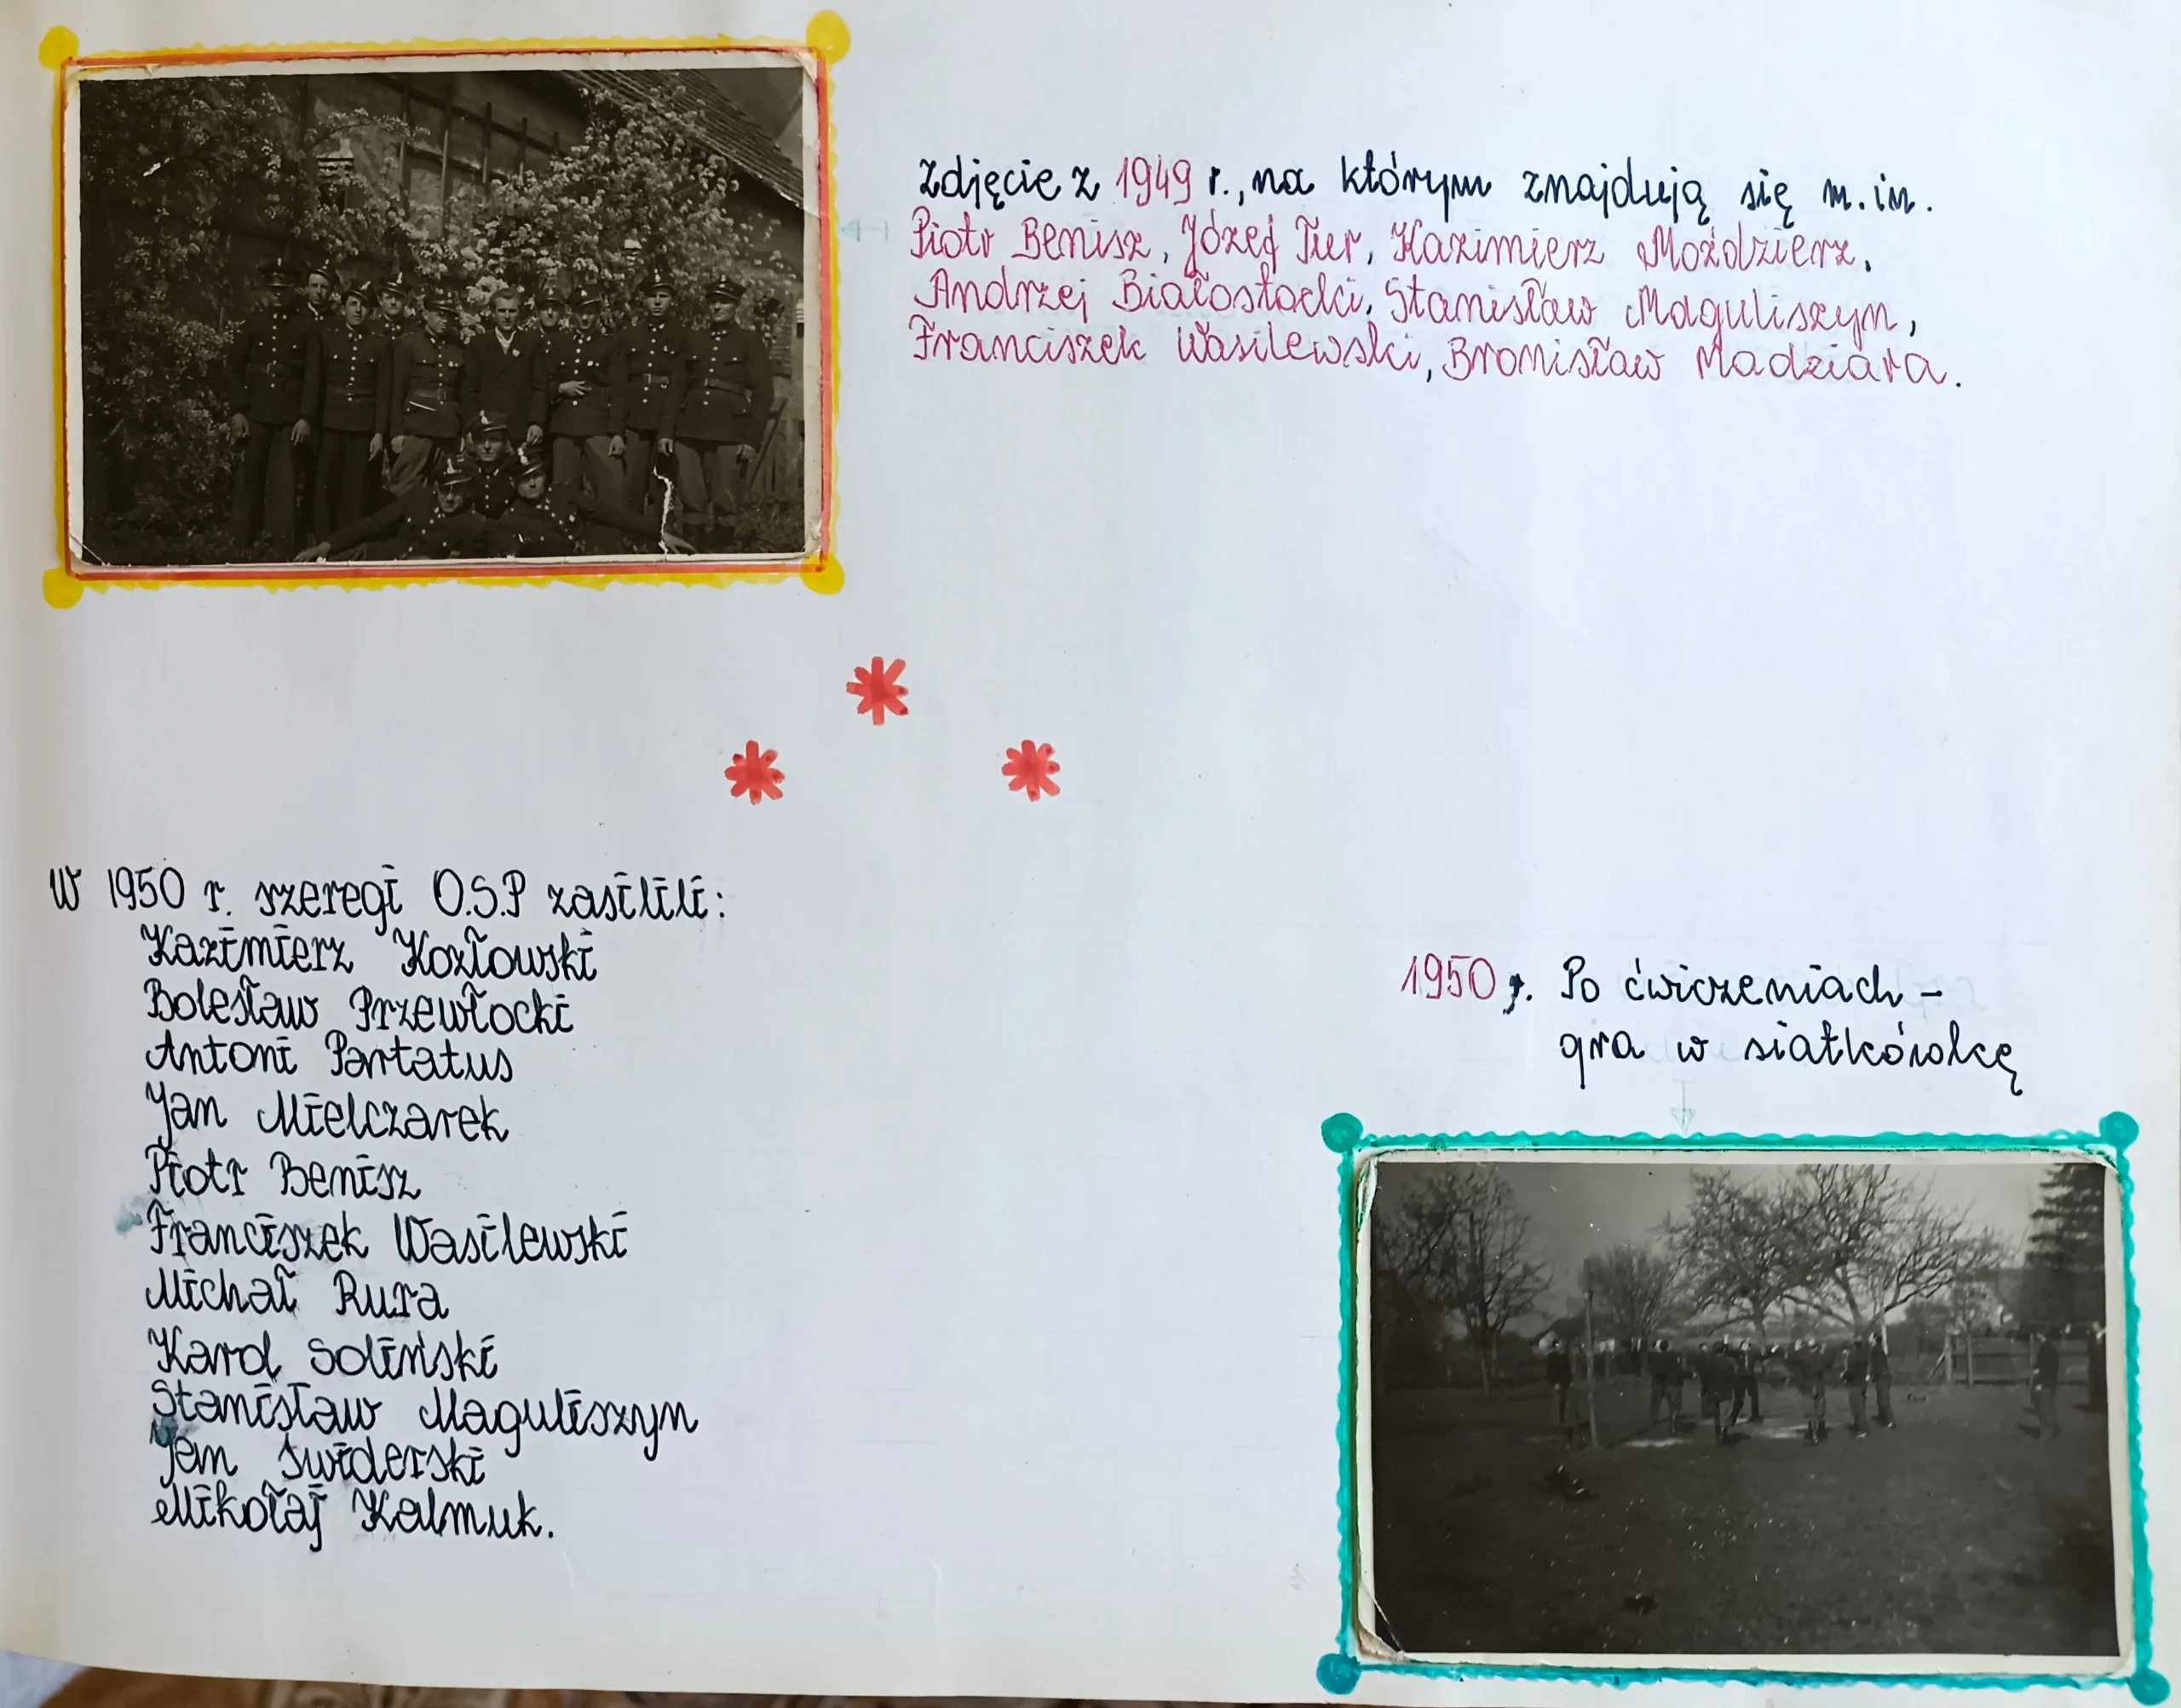 Zdjęcie z 1949 r., na którym znajdują się m.in.
Piotr Benisz, Józef Tur, Kazimierz Moździerz,
Andrzej Białostocki, Stanisław Maguliszyn,
Franciszek Wasilewski, Bronisław Madziara.
W 1950 r. szeregi O.S.P zasilili:
Kazimierz Kozłowski
Bolesław Przewłocki
Antoni Partatus
Jan Mielczarek
Piotr Benisz
Franciszek Wasilewski
Michał Rura
Karol Soliński
Stanisław Maguliszyn
Jan Świderski
Mikołaj Kalmuk.
1950 r. Po ćwiczeniach -
gra w siatkówkę